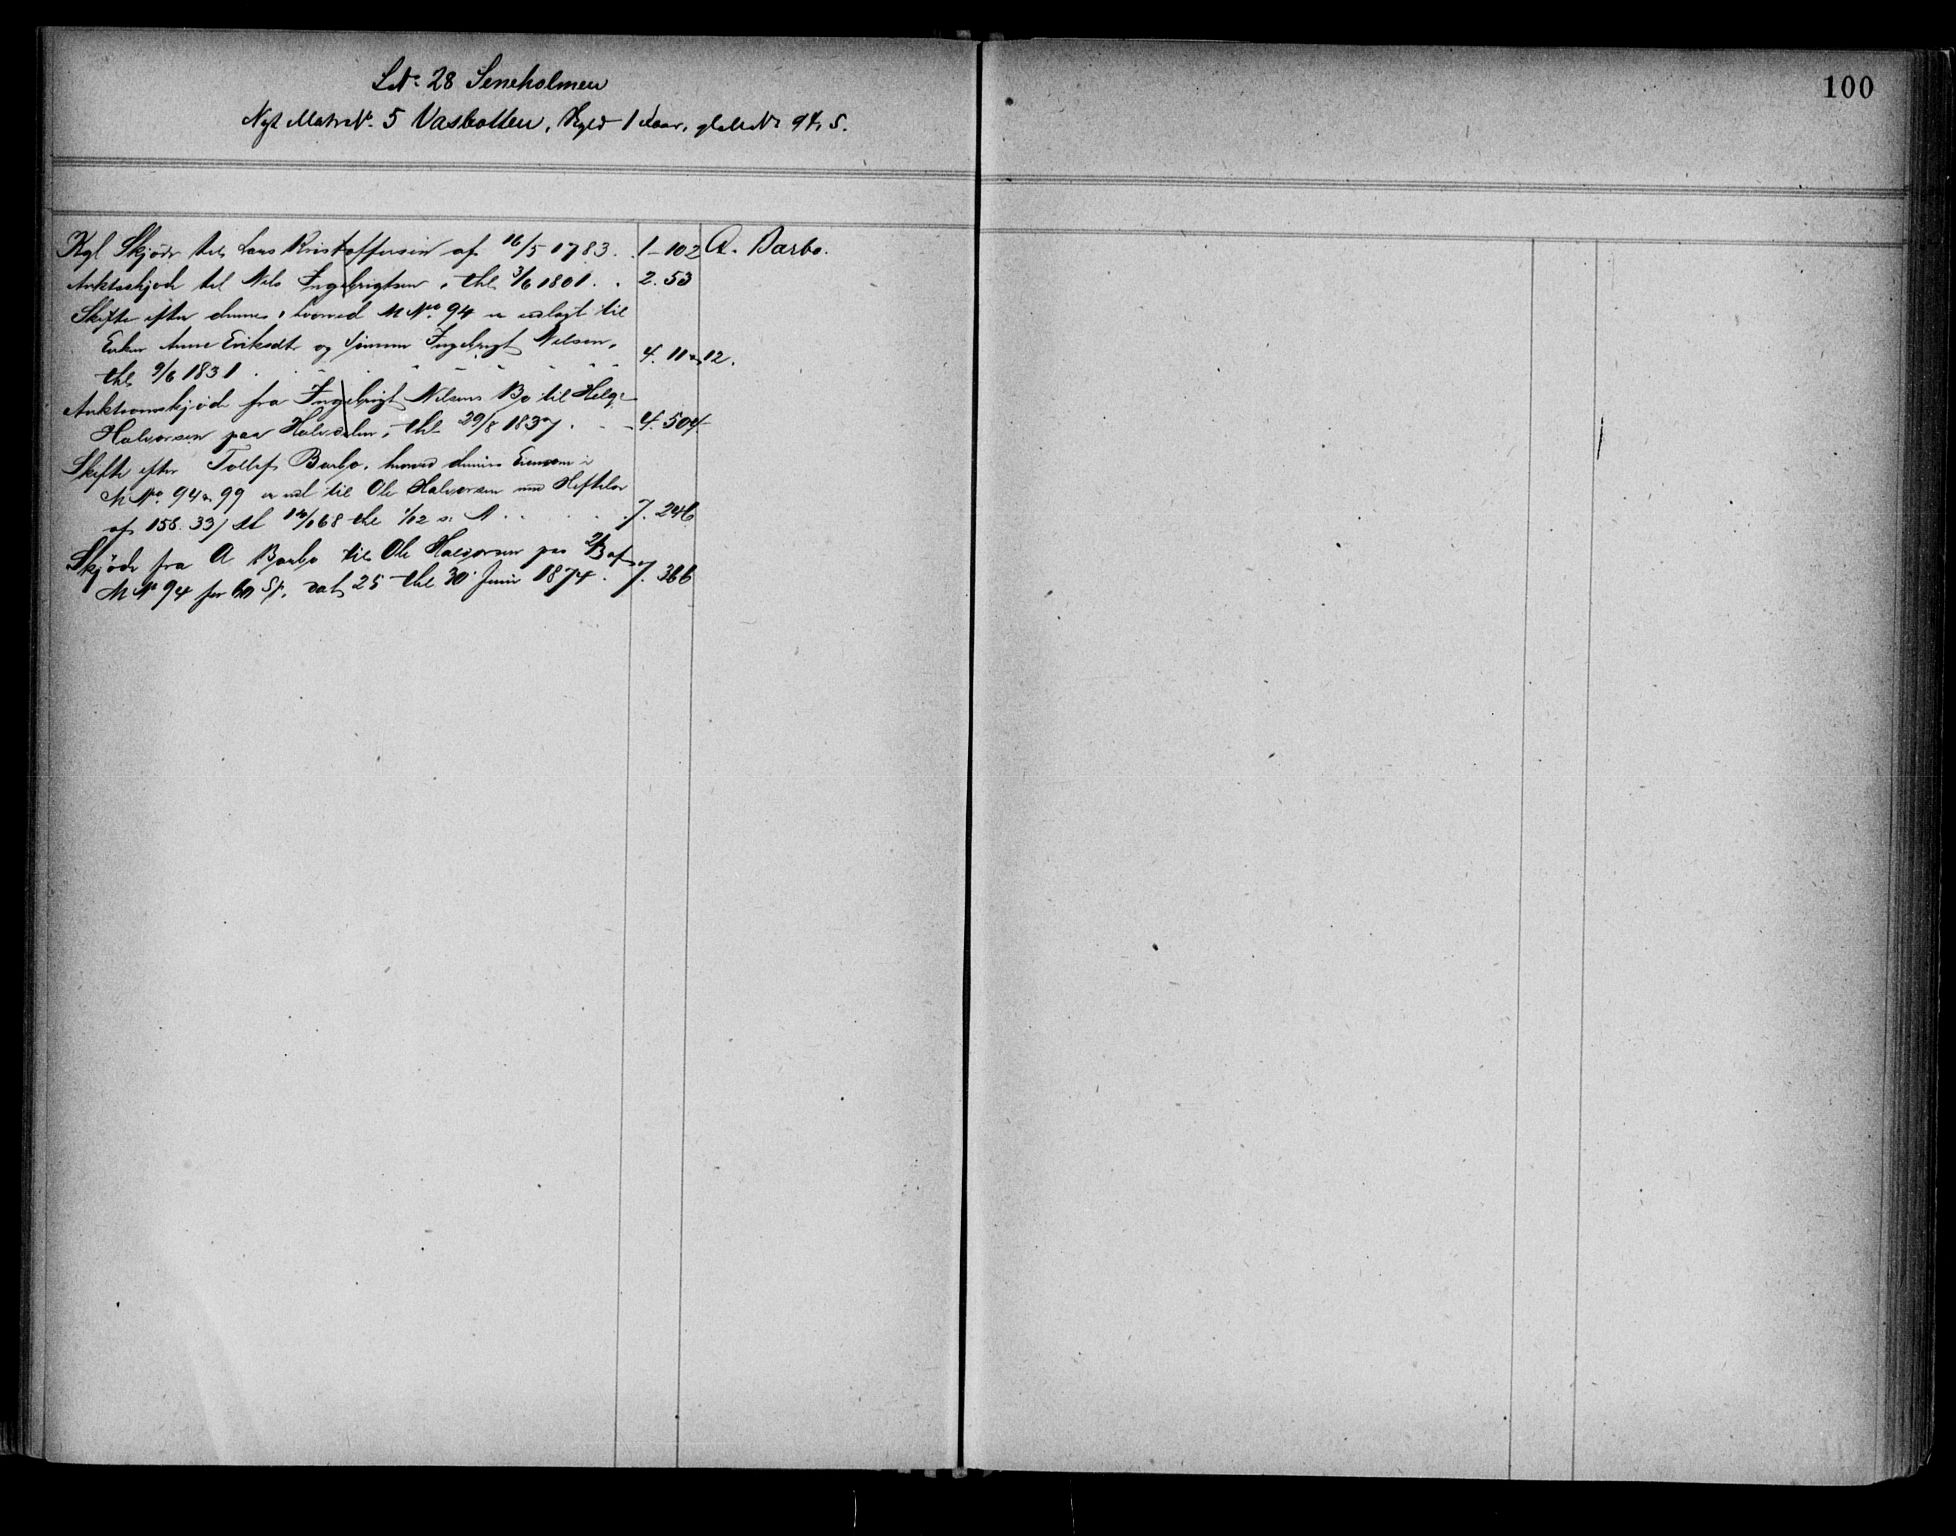 LN. 28 Seneholmen
Nyt MatrN. 5 Vasbotten, Skyld 1 , glMtN. 94, 5.
100
Kgl Skjøde til Lars Kristoffersen af 16/5 1783. 1-102 A. Barbo.
Auktsskjøde til Nils Ingebrigtsen, thl 3/6 1801. 2. 53
Skifte efter denne, hvorved MNo. 94 er udlagt til
Enken Anne Eriksdtr og Sønnen Ingebrigt Nilsen,
thl 9/6 1831 4. 11 & 12.
Auktionsskjøde fra Ingebrigt Nilsens Bo til Helge
Halvorsen paa Halvdelen, thl 29/8 1837. 4. 504
Skifte efter Tollef Barbo, hvorved dennes Eiendom i
MNo. 94 & 99 er udl til Ole Halvorsen med Heftelse
af 158. 33/ 68 thl 1/12 s. A. 7. 246
Skjøde fra A Barbo til Ole Halvorsen paa 2/3 af
MNo 94 for 60 Sp. dat 25 thl 30 Juni 1874. 7. 366